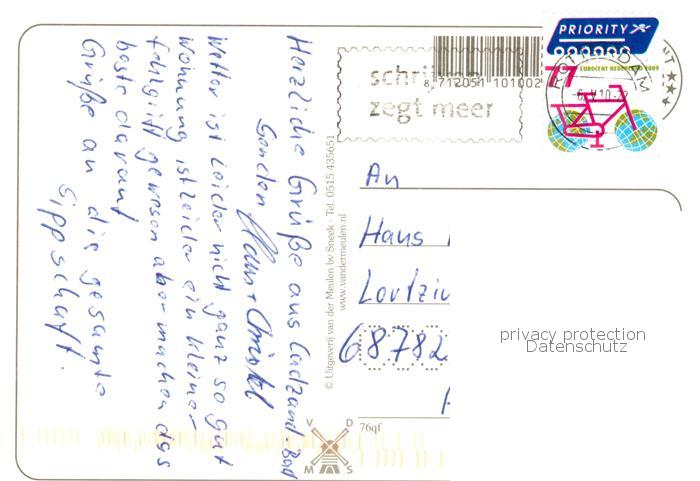 Herzliche Grüße aus Cadzand-Bad
Senden Hans + Christel
Wetter ist leider nicht ganz so gut
Wohnung ist leider ein kleiner
fehlgriff gewesen aber machen das
beste darauf
Grüße an die gesamte
Sippschaft.
© Uitgeverij van der Meulen bv Sneek - Tel. 0515 435651
www.vandermeulen.nl
schri
zegt meer
8 712051 101002
PRIORITY
77
ROTTERDAM
An
Hans
Lortzin
68782
76qf
V D
M S
privacy protection
Datenschutz